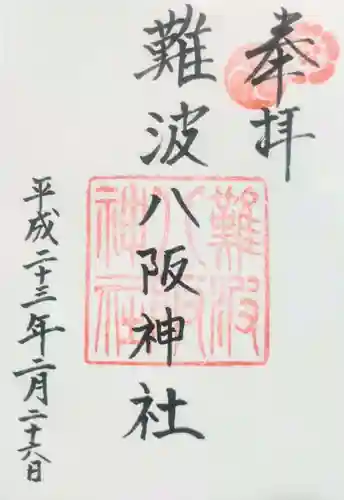 奉拝
難波八阪神社
平成二十三年二月二十六日
難波
八阪
神社